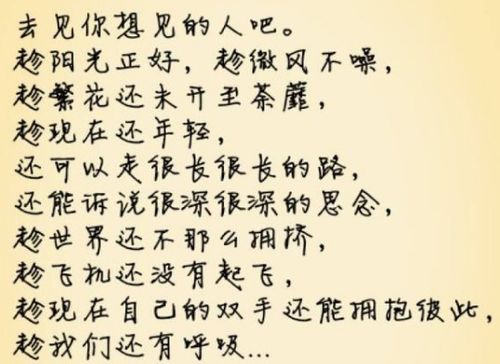 去见你想见的人吧。
趁阳光正好，趁微风不噪，
趁繁花还未开至荼蘼，
趁现在还年轻，
还可以走很长很长的路，
还能诉说很深很深的思念，
趁世界还不那么拥挤，
趁飞机还没有起飞，
趁现在自己的双手还能拥抱彼此，
趁我们还有呼吸...